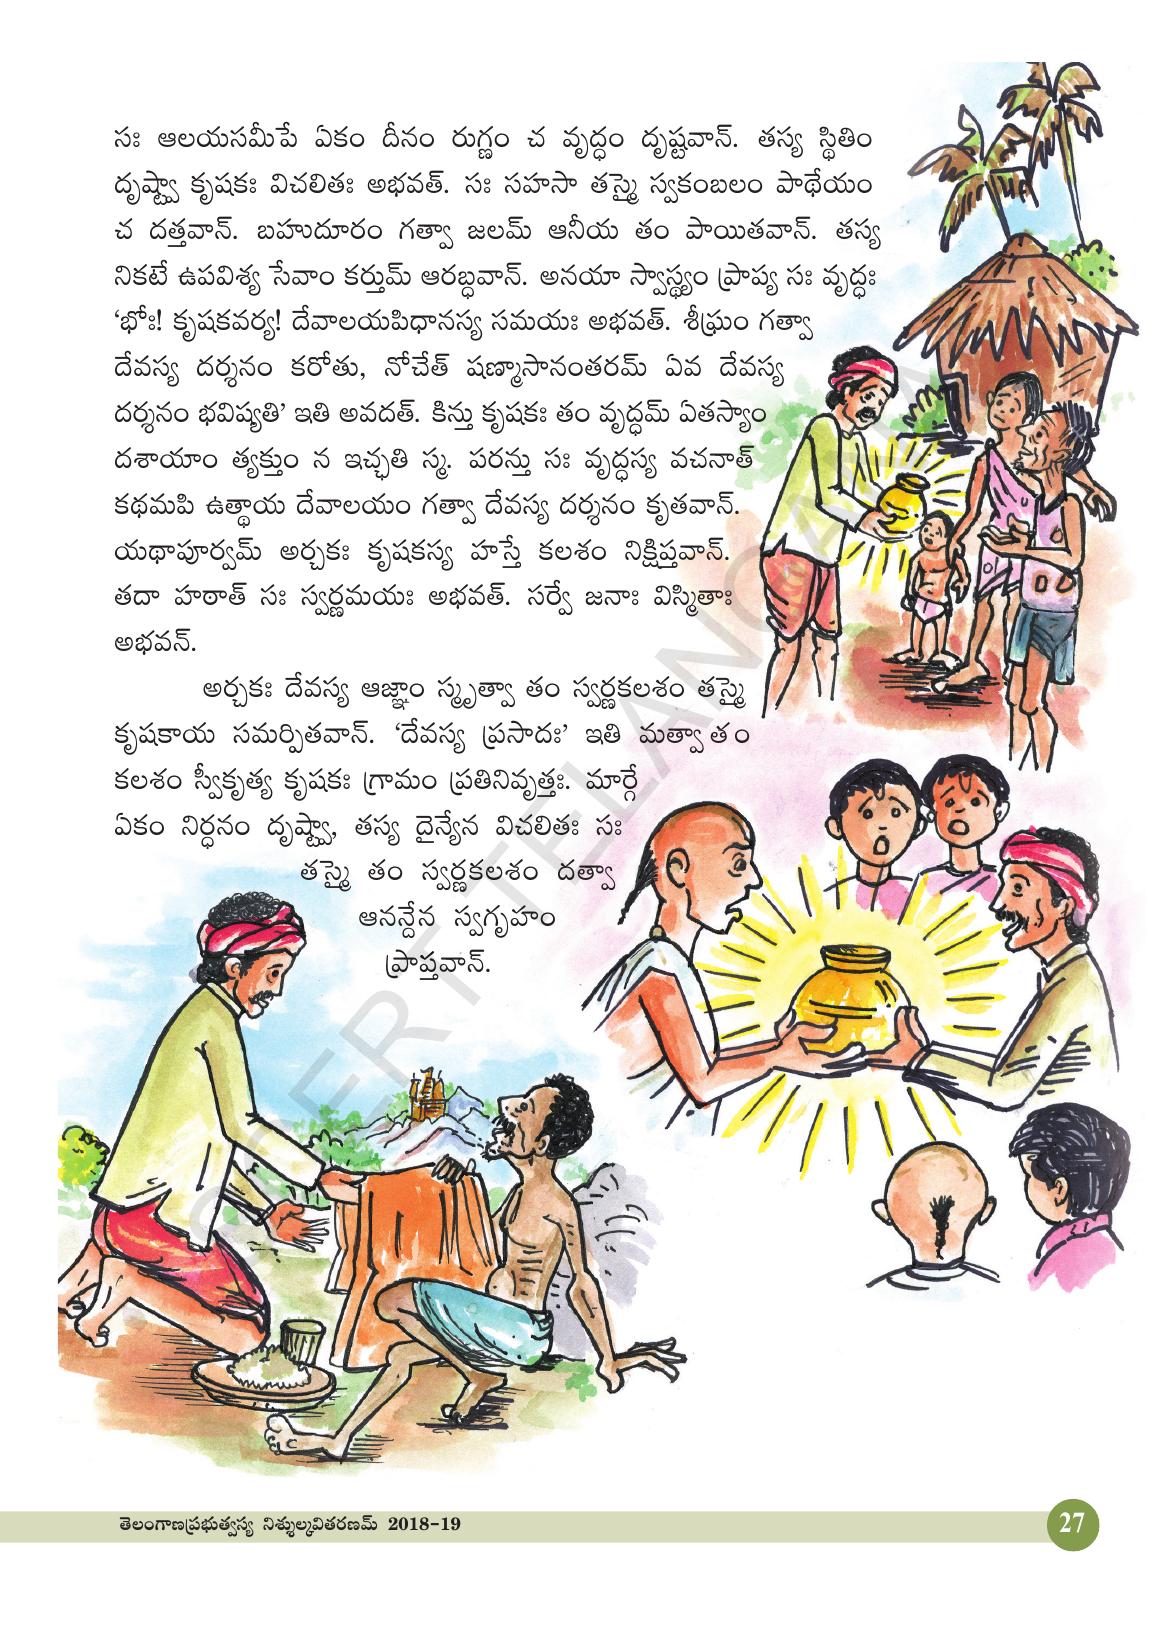 సః ఆలయసమీపే ఏకం దీనం రుగ్ణం చ వృద్ధం దృష్టవాన్. తస్య స్థితిం
దృష్ట్వా కృషకః విచలితః అభవత్. సః సహసా తస్మై స్వకంబలం పాథేయం
చ దత్తవాన్. బహుదూరం గత్వా జలమ్ ఆనీయ తం పాయితవాన్. తస్య
నికటే ఉపవిశ్య సేవాం కర్తుమ్ ఆరబ్ధవాన్. అనయా స్వాస్థ్యం ప్రాప్య సః వృద్ధః
‘భోః! కృషకవర్య! దేవాలయపిధానస్య సమయః అభవత్. శీఘ్రం గత్వా
దేవస్య దర్శనం కరోతు, నోచేత్ షణ్మాసానంతరమ్ ఏవ దేవస్య
దర్శనం భవిష్యతి’ ఇతి అవదత్. కిన్తు కృషకః తం వృద్ధమ్ ఏతస్యాం
దశాయాం త్యక్తుం న ఇచ్ఛతి స్మ. పరన్తు సః వృద్ధస్య వచనాత్
కథమపి ఉత్థాయ దేవాలయం గత్వా దేవస్య దర్శనం కృతవాన్.
యథాపూర్వమ్ అర్చకః కృషకస్య హస్తే కలశం నిక్షిప్తవాన్.
తదా హఠాత్ సః స్వర్ణమయః అభవత్. సర్వే జనాః విస్మితాః
అభవన్.
అర్చకః దేవస్య ఆజ్ఞాం స్మృత్వా తం స్వర్ణకలశం తస్మై
కృషకాయ సమర్పితవాన్. ‘దేవస్య ప్రసాదః’ ఇతి మత్వా తం
కలశం స్వీకృత్య కృషకః గ్రామం ప్రతినివృత్తః. మార్గే
ఏకం నిర్ధనం దృష్ట్వా, తస్య దైన్యేన విచలితః సః
తస్మై తం స్వర్ణకలశం దత్వా
ఆనన్దేన స్వగృహం
ప్రాప్తవాన్.
SCERT TELANGANA
తెలంగాణప్రభుత్వస్య నిశ్శుల్కవితరణమ్ 2018-19
27